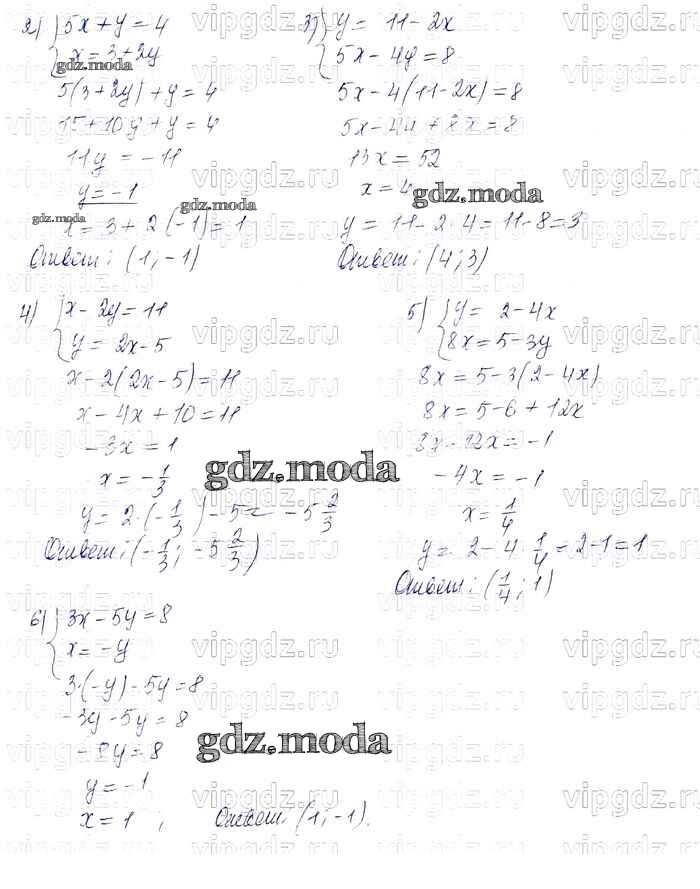 2) { 5x + y = 4
x = 3 + 2y
5(3 + 2y) + y = 4
15 + 10y + y = 4
11y = -11
y = -1
x = 3 + 2(-1) = 1
Ответ: (1; -1)
3) { y = 11 - 2x
5x - 4y = 8
5x - 4(11 - 2x) = 8
5x - 44 + 8x = 8
13x = 52
x = 4
y = 11 - 2·4 = 11 - 8 = 3
Ответ: (4; 3)
4) { x - 2y = 11
y = 2x - 5
x - 2(2x - 5) = 11
x - 4x + 10 = 11
-3x = 1
x = -1/3
y = 2·(-1/3) - 5 = -5 2/3
Ответ: (-1/3; -5 2/3)
5) { y = 2 - 4x
8x = 5 - 3y
8x = 5 - 3(2 - 4x)
8x = 5 - 6 + 12x
8x - 12x = -1
-4x = -1
x = 1/4
y = 2 - 4·1/4 = 2 - 1 = 1
Ответ: (1/4; 1)
6) { 3x - 5y = 8
x = -y
3·(-y) - 5y = 8
-3y - 5y = 8
-8y = 8
y = -1
x = 1; Ответ: (1; -1).
gdz.moda
gdz.moda
gdz.moda
gdz.moda
gdz.moda
gdz.moda
vipgdz.ru